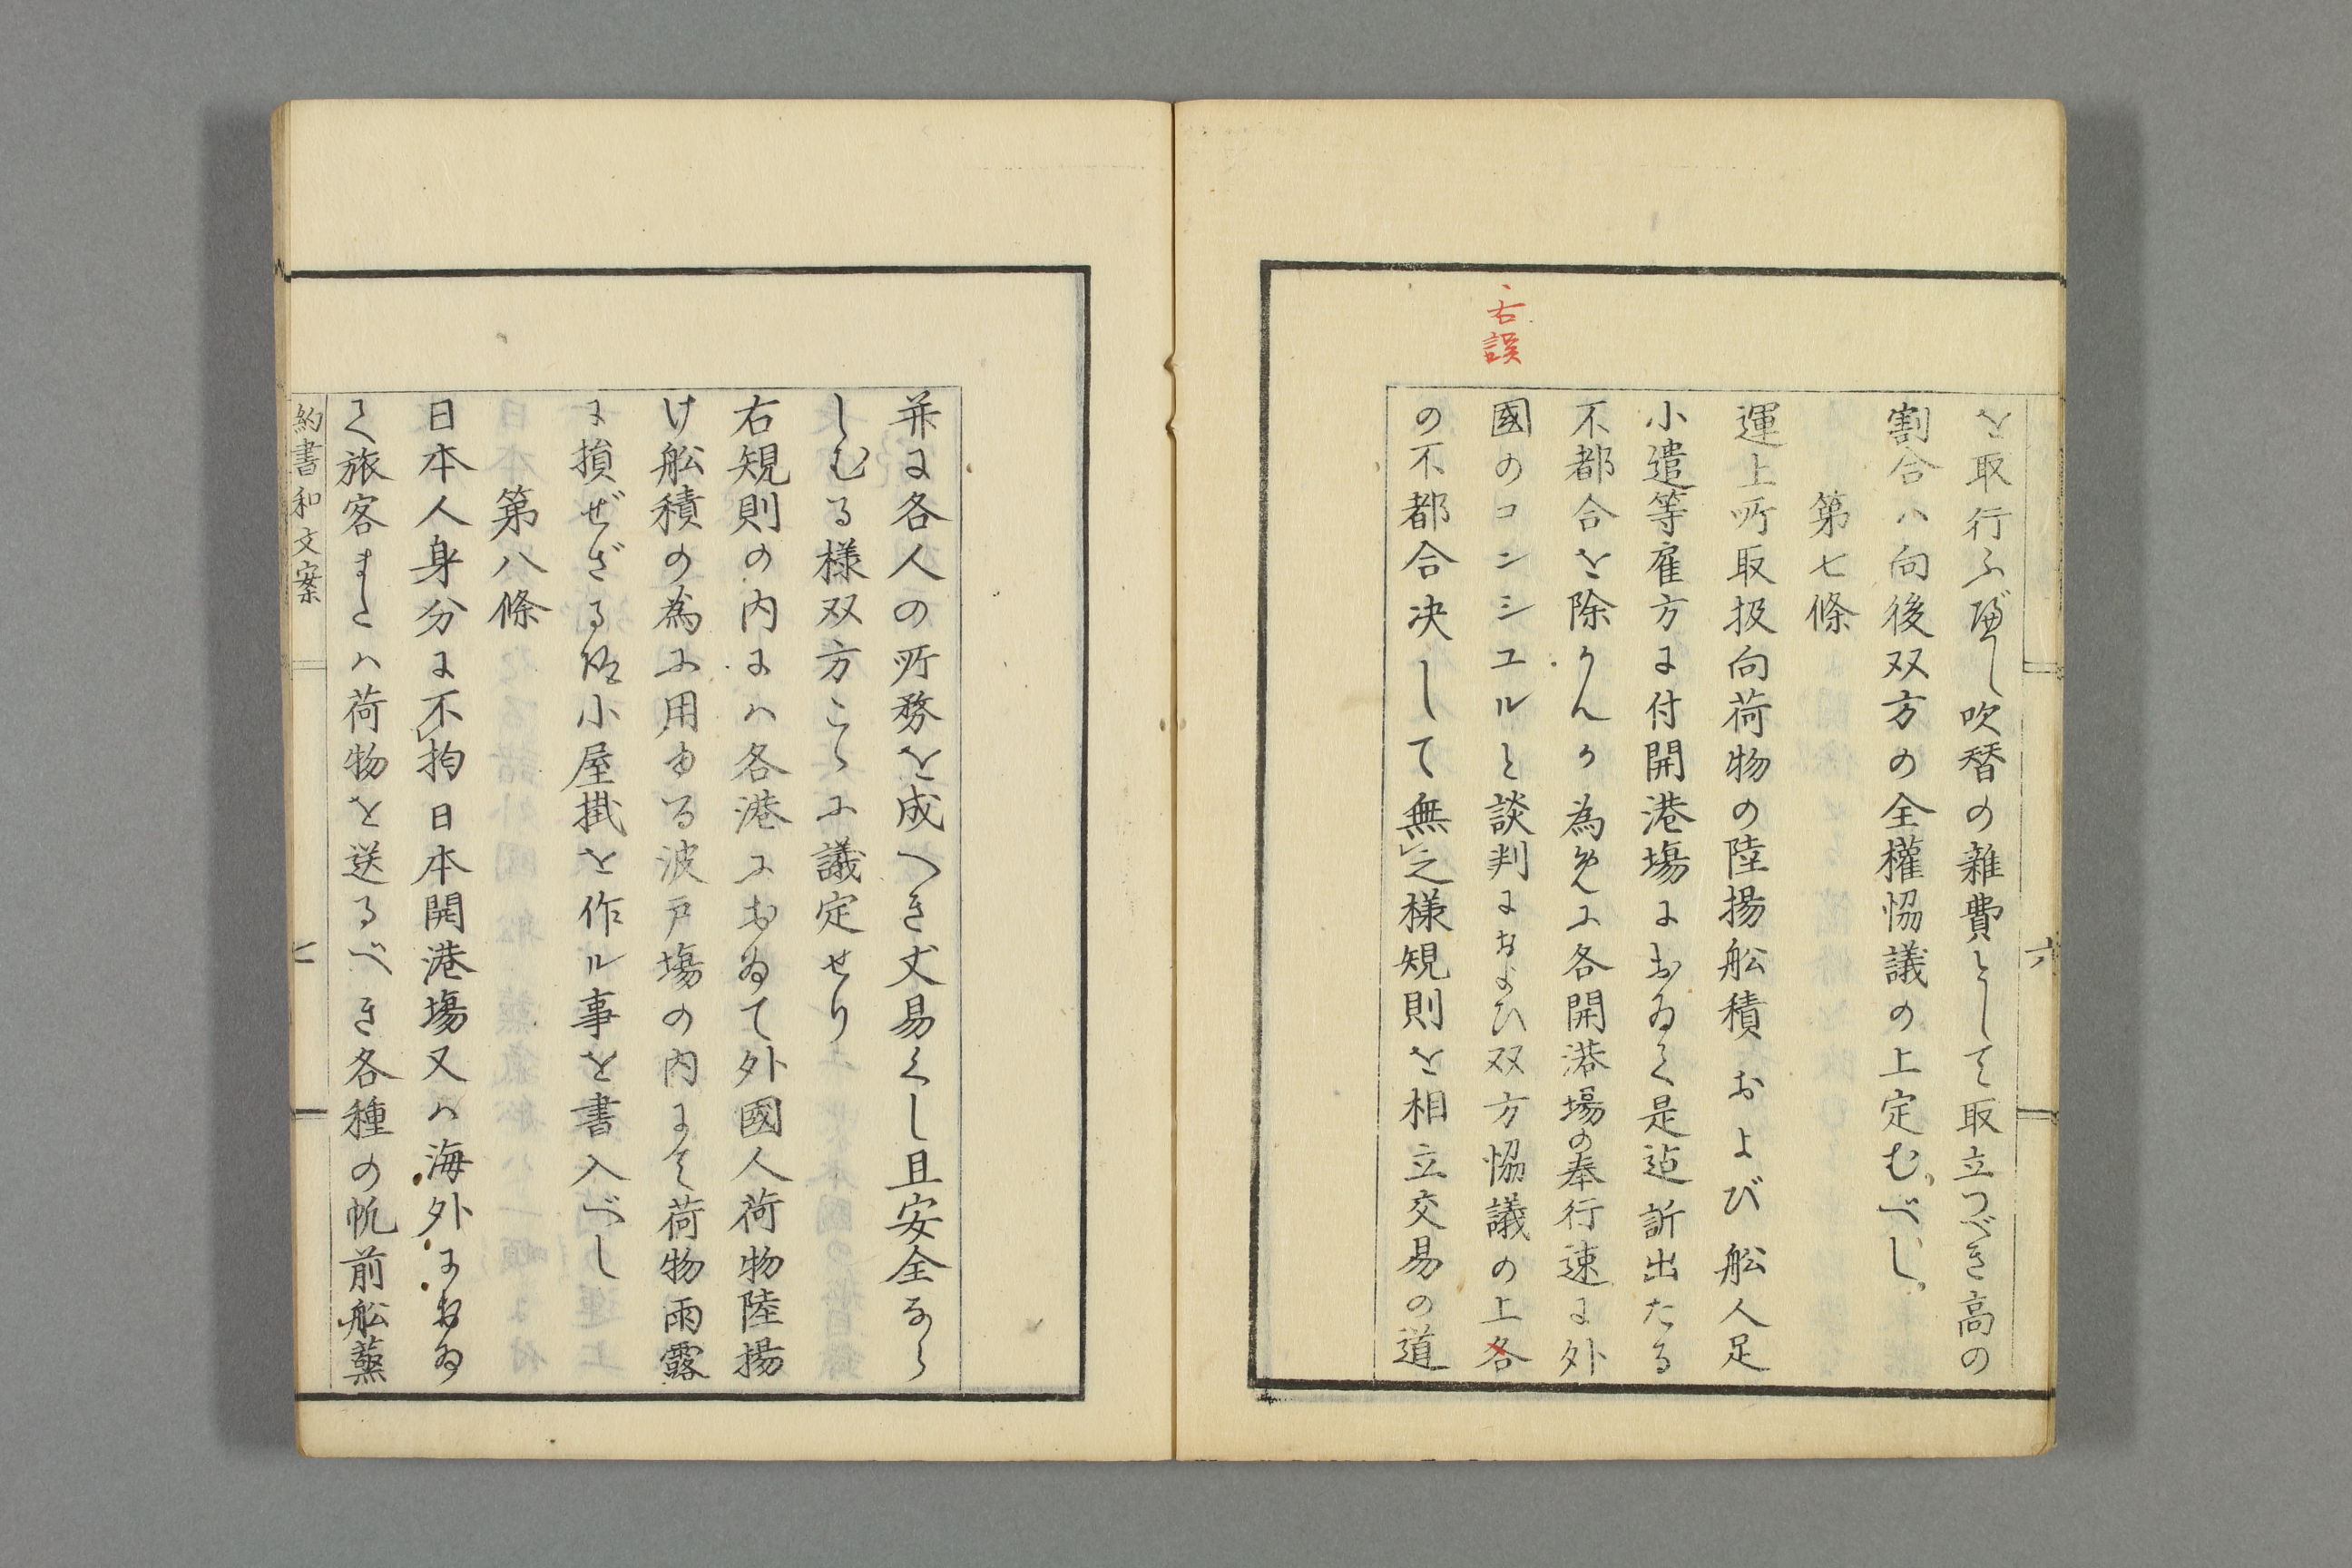 六
を取行ふべし吹替の雑費として取立つべき高の
割合ハ向後双方の全權協議の上定むべし
第七條
運上所取扱向荷物の陸揚舩積および舩人足
小遣等雇方に付開港場におゐて是迠訴出たる
不都合を除かんか為めに各開港場の奉行速に外
國のコンシユルと談判におよひ双方協議の上各
、右誤
の不都合決して無㆑之様規則を相立交易の道
并に各人の所務を成へき丈易くし且安全なら
しむる様双方こゝに議定せり
右規則の内にハ各港におゐて外國人荷物陸揚
け舩積の為に用ゆる波戸場の内にて荷物雨露
に損ぜざる様小屋掛を作ル事を書入べし
第八條
日本人身分に不㆑拘日本開港場又ハ海外におゐ
て旅客またハ荷物を送るべき各種の帆前舩蒸
約書和文案
七